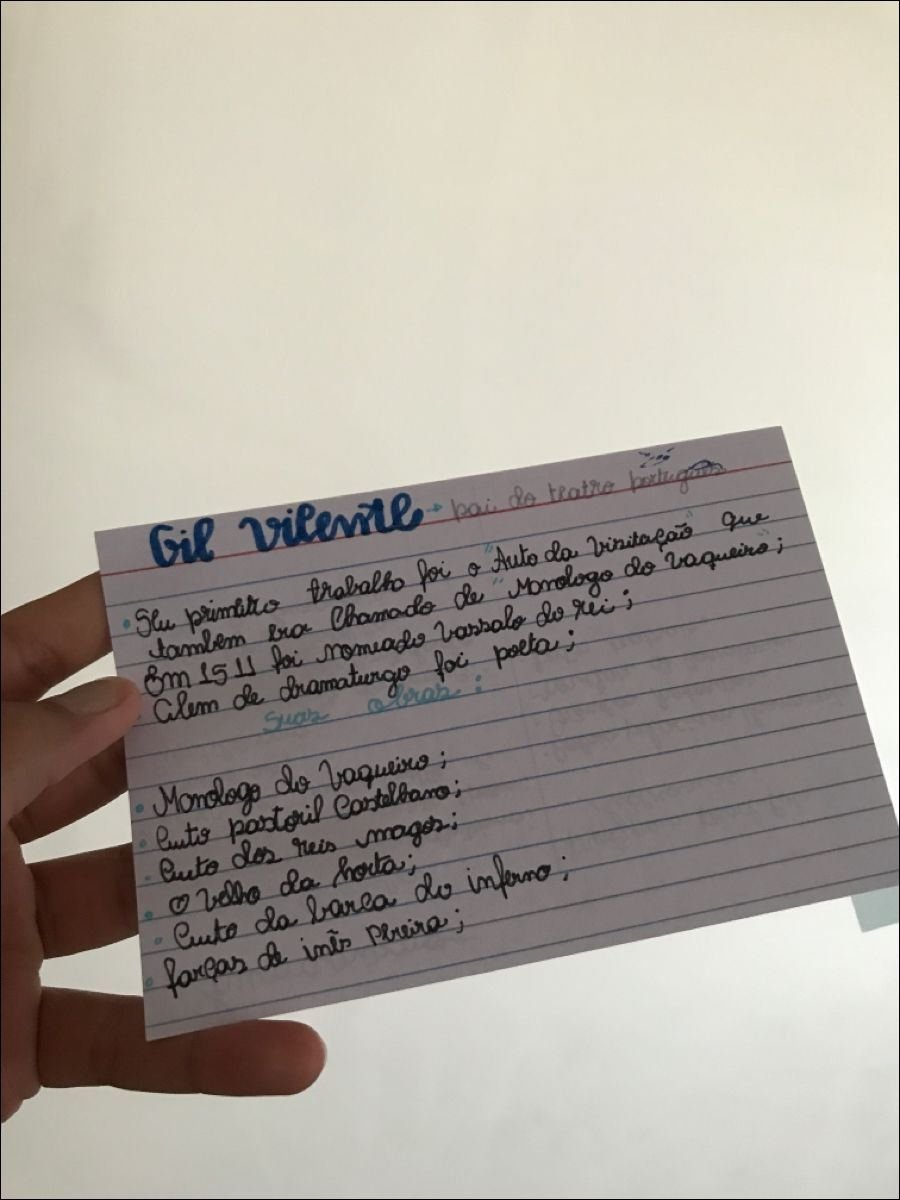 Gil Vicente → pai do teatro português
• Seu primeiro trabalho foi o "Auto da Visitação" que
também era Chamado de "Monologo do Vaqueiro";
Em 1511 foi nomeado Vassalo do rei;
Alem de dramaturgo foi poeta;
Suas obras:
• Monologo do Vaqueiro;
• Auto pastoril Castelhano;
• Auto dos reis magos;
• O Velho da horta;
• Auto da barca do inferno;
• farças de inês Pereira;